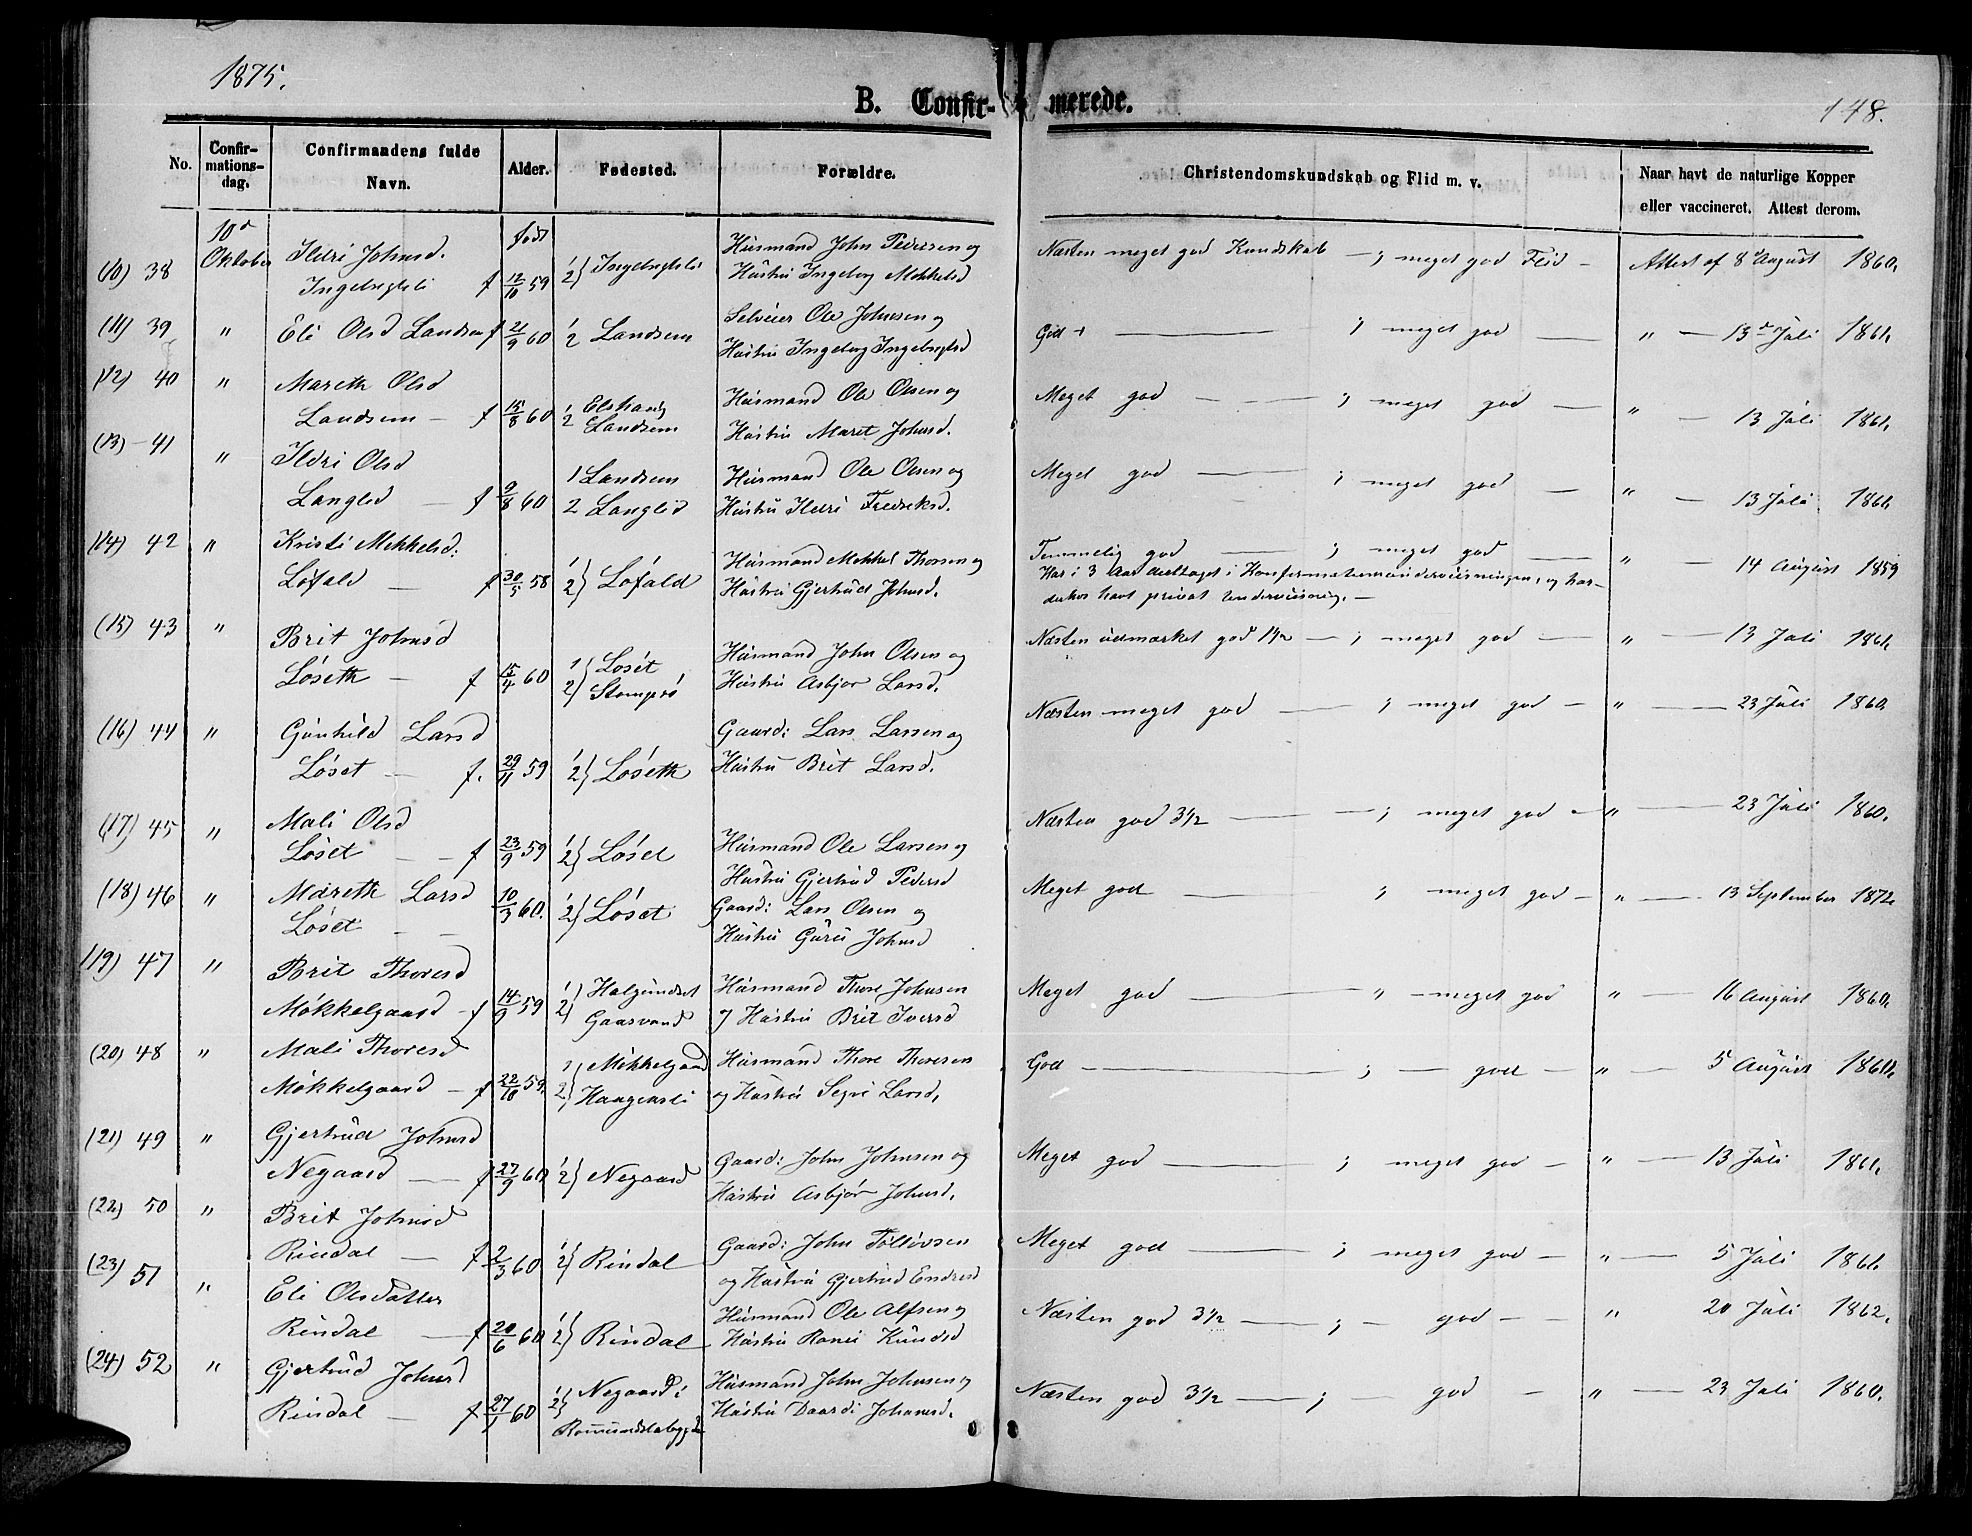 1875.
B. Confirmerede.
148.
No. Confirmationsdag. Confirmandens fulde Navn. Alder. Fødested. Forældre. Christendomskundskab og Flid m. v. Naar havt de naturlige Kopper eller vaccineret. Attest derom.
10de Oktober født
(10) 38 Ildri Johnsd. Husmand John Pedersen og Næsten meget god Kundskab — ; meget god Flid — Attest af 8 August 1860.
Ingebrigtsli f 12/10 59 1/2} Ingebrigtsli Hustru Ingeborg Mekkelsd
(11) 39 " Eli Olsd Landsem f 21/9 60 1/2 Landsem Selveier Ole Johnsen og Hustru Ingeborg Ingebrigtsd God + — ; meget god — " — 13de Juli 1861.
(12) 40 " Mareth Olsd Husmand Ole Olsen og Meget god — ; meget god — " — 13 Juli 1861.
Landsem — f 15/8 60 1/2 Landsem Hustru Marit Johnsd.
(13) 41 " Ildri Olsd 1 Landsem Husmand Ole Olsen og Meget god — ; meget god — " — 13 Juli 1861.
Langlid — f 9/8 60 2 Langlid Hustru Ildri Fredriksd.
(14) 42 " Kristi Mekkelsd: Husmand Mekkel Thoresen og Temmelig god — ; meget god — " — 14 August 1859
Løfald — f 30/5 58 1/2} Løfald Hustru Gjertrud Johnsd. Har i 3 Aar deeltaget i Konfirmationsundervisningen, og har
desuden havt privat Undervisning. —
(15) 43 " Brit Johnsd Husmand John Olsen og Næsten udmærket god 1 1/2 — ; meget god — " — 13 Juli 1861.
Løseth — f 15/4 60 1/2} Løset Stomprø Hustru Asbjør Larsd.
(16) 44 " Gunhild Larsd Gaard: Lars Larsen og Næsten meget god — ; meget god — " — 23 Juli 1860.
Løset — f. 29/11 59 1/2} Løseth Hustru Brit Larsd.
(17) 45 " Mali Olsd Husmand Ole Larsen og Næsten god 3 1/2 — ; meget god — " — 23 Juli 1860.
Løset — f 23/9 59 1/2} Løset Hustru Gjertrud Pedersd
(18) 46 " Mareth Larsd Gaard: Lars Olsen og Meget god — ; meget god — " — 13 September 1872.
Løset — 10/3 60. 1/2} Løset Hustru Guru Johnsd
(19) 47 " Brit Thoresd 1/2} Halgunset Husmand Thore Johnsen Meget god — " — meget god " — 16 August 1860.
Møkkelgaard — f 14/9 59 Gaasvand og Hustru Brit Iversd
(20) 48 " Mali Thoresd 1/2} Møkkelgaard Husmand Thore Thoresen God — ; — god — " — 5 August 1860.
Møkkelgaard — f 22/10 59. Haagensli og Hustru Segri Larsd.
(21) 49 " Gjertrud Johnsd Gaard: John Johnsen og Meget god — ; meget god — " — 13 Juli 1861.
Negaard — f 27/9 60 1/2} Negaard Hustru Asbjør Johnsd.
(22) 50 " Brit Johnsd Gaard: John Tollevsen Meget god — ; meget god — " — 5 Juli 1861.
Rindal — f 2/3 60 1/2} Rindal og Hustru Gjertrud Endresd
(23) 51 " Eli Olsdatter Husmand Ole Alfsen og Næsten god 3 1/2 — ; — god — " 20 Juli 1862.
Rindal — f 20/6 60 1/2} Rindal Hustru Ranei Knudsd
(24) 52 " Gjertrud Johnsd 1/2} Negaard i Husmand John Johnsen og Næsten god 3 1/2 — ; — god — " — 23 Juli 1860.
Rindal — f 27/1 60 Romundstabygden Hustru Daardi Johannsd.